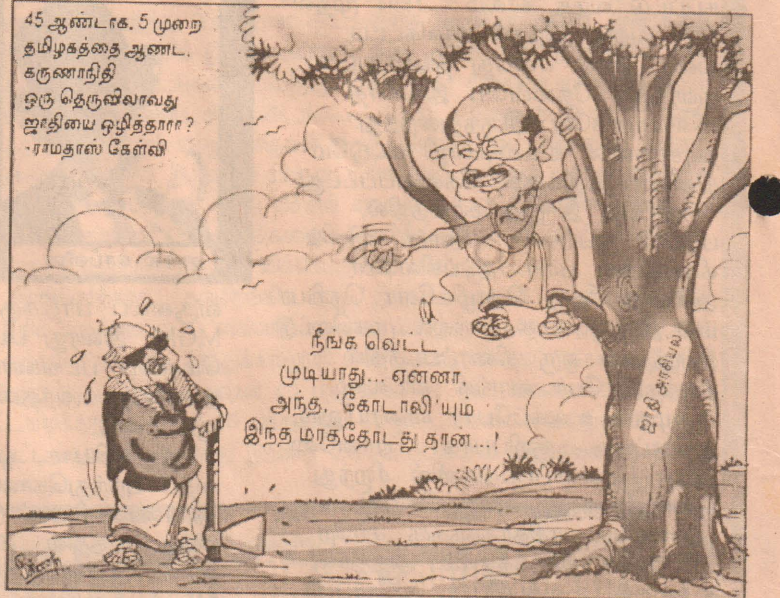 45 ஆண்டாக, 5 முறை
தமிழகத்தை ஆண்ட,
கருணாநிதி
ஒரு தெருவிலாவது
ஜாதியை ஒழித்தாரா?
-ராமதாஸ் கேள்வி
நீங்க வெட்ட
முடியாது... ஏன்னா,
அந்த, 'கோடாலி'யும்
இந்த மரத்தோடது தான்...!
ஜாதி அரசியல்